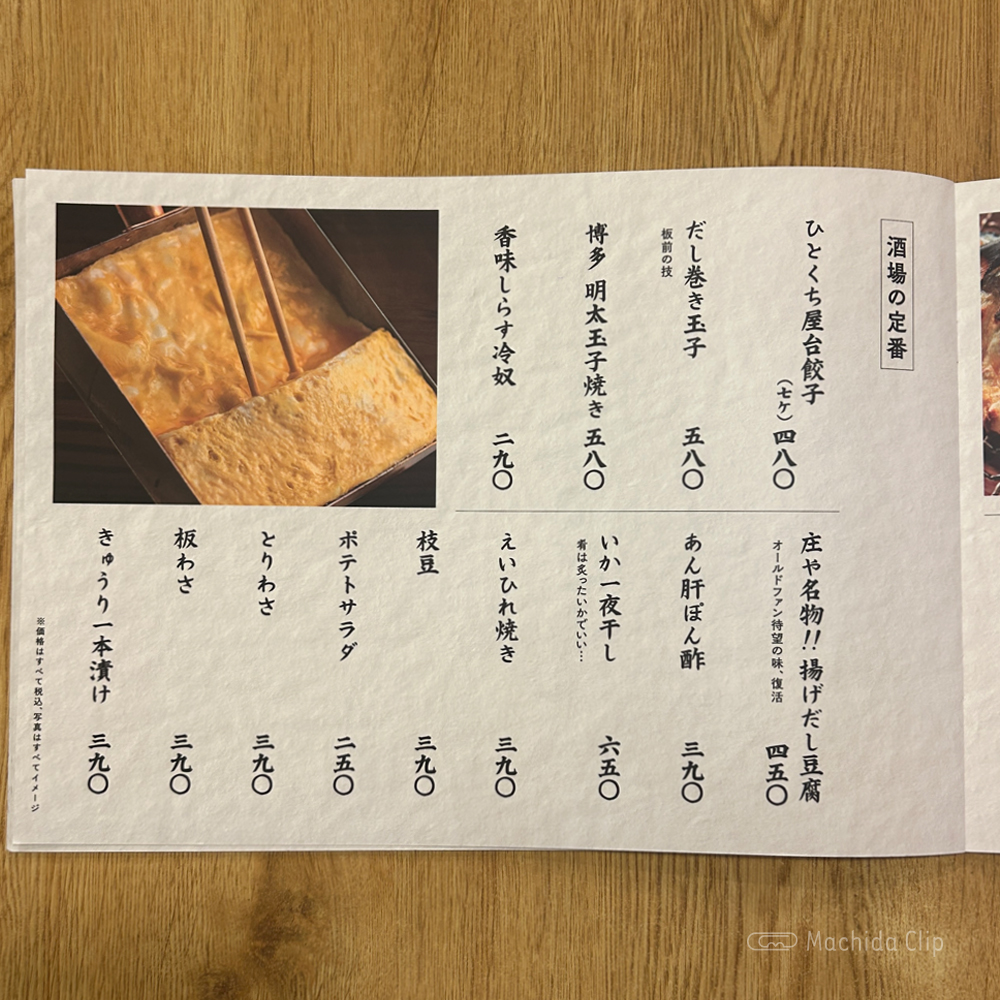 酒場の定番
ひとくち屋台餃子
(七ケ) 四八〇
だし巻き玉子 五八〇
板前の技
博多 明太玉子焼き 五八〇
香味しらす冷奴 二九〇
庄や名物!! 揚げだし豆腐
オールドファン待望の味、復活
四五〇
あん肝ぽん酢 三九〇
いか一夜干し 六五〇
肴は炙ったいかでいい…
えいひれ焼き 三九〇
枝豆 三九〇
ポテトサラダ 二五〇
とりわさ 三九〇
板わさ 三九〇
きゅうり一本漬け 三九〇
※価格はすべて税込、写真はすべてイメージ
Machida Clip